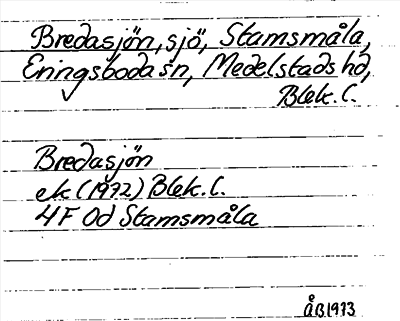 Bredasjön, sjö, Stamsmåla,
Eringsboda sn, Medelstads hd,
Blek. l.
Bredasjön
ek (1972) Blek. l.
4F 0d Stamsmåla
ÅB 1973